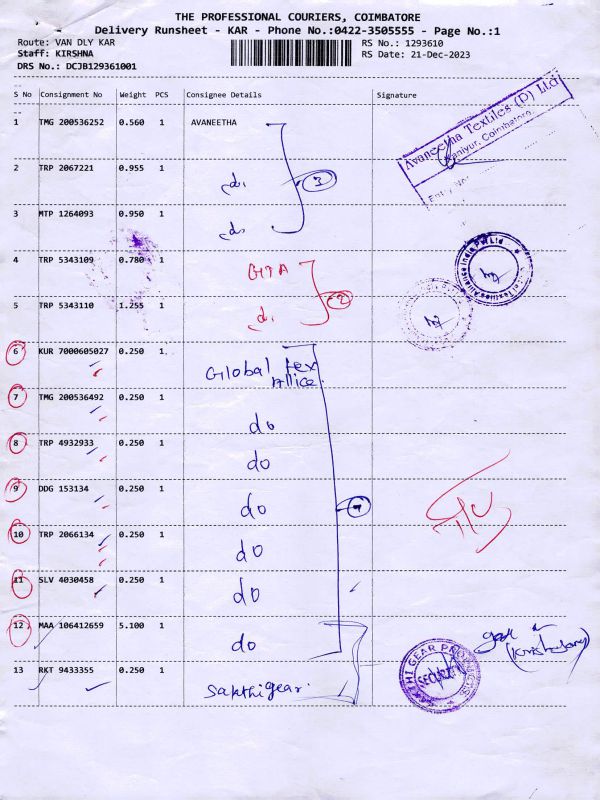 THE PROFESSIONAL COURIERS, COIMBATORE
Delivery Runsheet - KAR - Phone No.:0422-3505555 - Page No.:1
Route: VAN DLY KAR
RS No.: 1293610
Staff: KIRSHNA
RS Date: 21-Dec-2023
DRS No.: DCJB129361001
S No Consignment No Weight PCS Consignee Details Signature
1 TMG 200536252 0.560 1 AVANEETHA
Avaneetha Textiles (P) Ltd
Kaniyur, Coimbatore.
Entry No
2 TRP 2067221 0.955 1 do. 3
3 MTP 1264093 0.950 1 do.
4 TRP 5343109 0.780 1 GTA
5 TRP 5343110 1.255 1 do. 2
6 KUR 7000605027 0.250 1 Global tex
Allice.
7 TMG 200536492 0.250 1 do
8 TRP 4932933 0.250 1 do
9 DDG 153134 0.250 1 do 7
10 TRP 2066134 0.250 1 do
11 SLV 4030458 0.250 1 do
12 MAA 106412659 5.100 1 do
13 RKT 9433355 0.250 1 Sakthi gear.
SAKTHI GEAR PRODUCTS
SECURITY